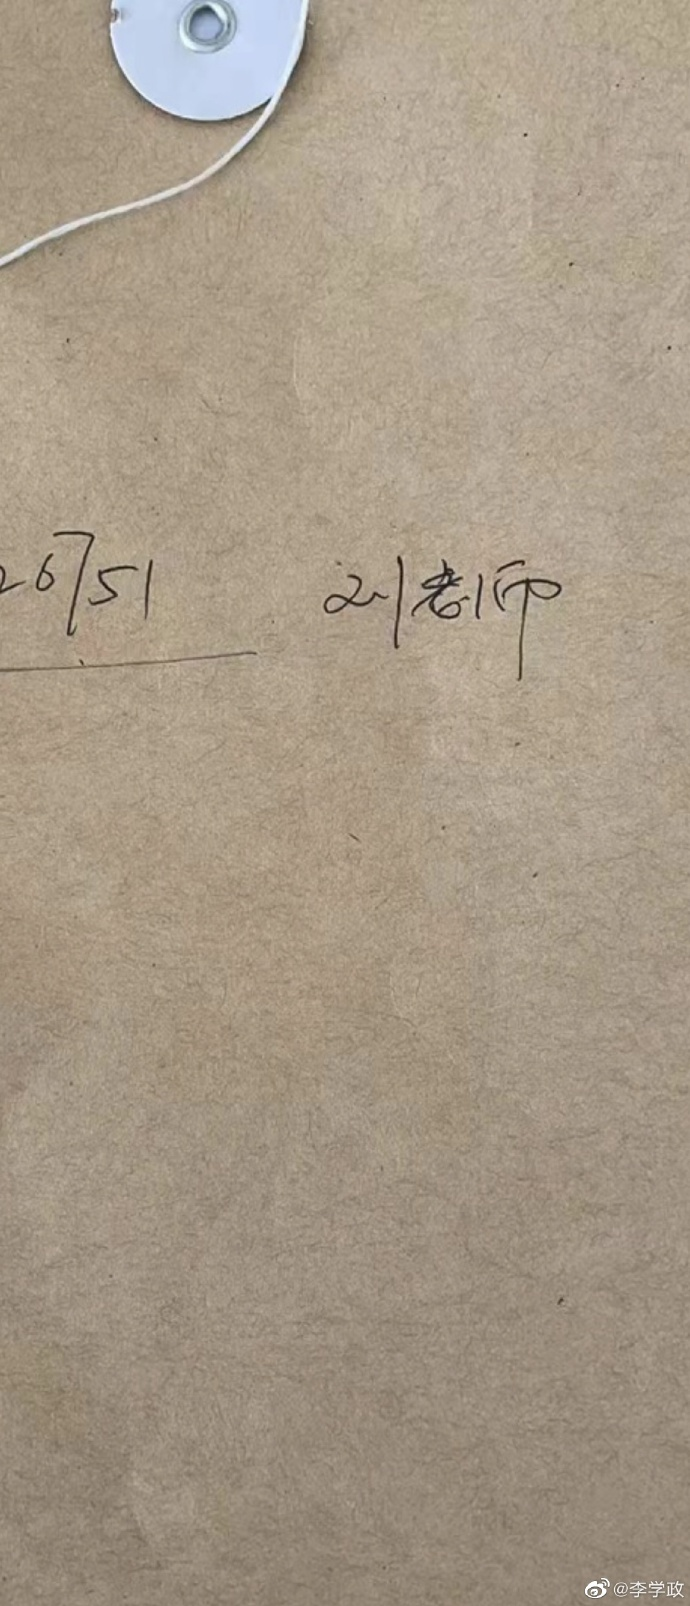 26751 刘老师
@李学政